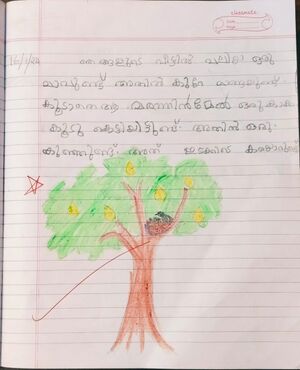 classmate
Date
Page
ഞങ്ങളുടെ വീട്ടിൽ വലിയ ഒരു
മാവുണ്ട് അതിൽ കുറെ മാങ്ങയുണ്ട്
കൂടാതെ ആ മരത്തിൻമേൽ ഒരു കാക്ക
കൂടു കെട്ടിയിട്ടുണ്ട് അതിൽ ഒരു
കുഞ്ഞുണ്ട്. അത്